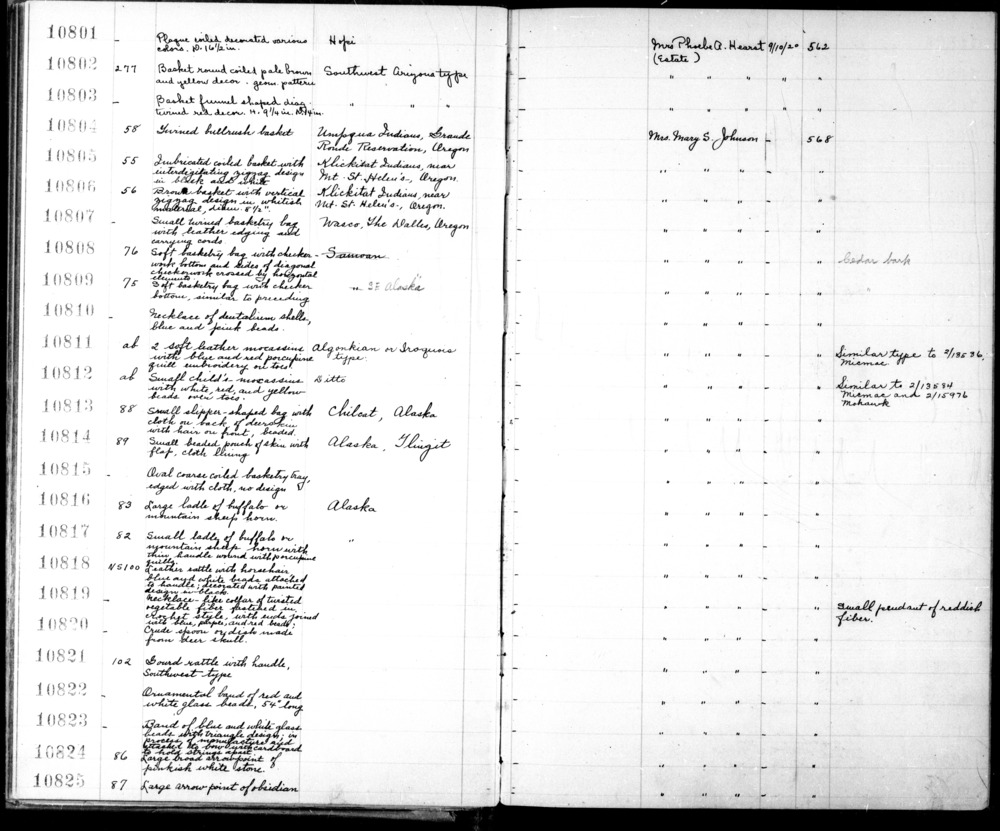 10801 - Plaque coiled decorated various Hopi Mrs Phoebe A. Hearst 9/10/20 - 562
colors. D. 16 1/2 in. (Estate)
10802 277 Basket round coiled pale brown Southwest Arizona type " " " " - "
and yellow decor. geom. pattern
10803 - Basket funnel shaped diag. " " " " " " " - "
twined red decor. H. 9 1/4 in. in.
10804 58 Twined bullrush basket Umpqua Indians, Grande Mrs. Mary S. Johnson - 568
Ronde Reservation, Oregon
10805 55 Imbricated coiled basket with Klickitat Indians, near " " " - "
interdigitating zigzag design Mt. St. Helen's-, Oregon.
in black and white
10806 56 Brown basket with vertical Klickitat Indians, near " " " - "
zigzag design in whitish Mt. St. Helen's-, Oregon.
material, diam. 8 1/2".
10807 - Small twined basketry bag Wasco, The Dalles, Oregon " " " - "
with leather edging and
carrying cords.
10808 76 Soft basketry bag with checker- Samoan " " " - " Cedar bark
work bottom and sides of diagonal
checkerwork crossed by horizontal
elements.
10809 75 Soft basketry bag with checker " SE Alaska " " " - " "
bottom, similar to preceding
10810 - Necklace of dentalium shells, " " " - "
blue and pink beads.
10811 ab 2 soft leather mocassins Algonkian or Iroquois " " " - " Similar type to 2/13536.
with blue and red porcupine type. Micmac
quill embroidery on toes
10812 ab Small child's mocassins Ditto " " " - " Similar to 2/13534
with white, red, and yellow Micmac and 2/15976
beads over toes. Mohawk
10813 88 Small slipper-shaped bag with Chilcat, Alaska " " " - "
cloth on back of deerskin
with hair on front, beaded
10814 89 Small beaded pouch of skin with Alaska, Tlingit " " " - "
flap, cloth lining
10815 - Oval coarse coiled basketry tray, " " " - "
edged with cloth, no design
10816 83 Large ladle of buffalo or Alaska " " " - "
mountain sheep horn.
10817 82 Small ladle of buffalo or " " " " - "
mountain sheep horn with
thin handle wound with porcupine
quills.
10818 N5100 Leather rattle with horsehair, " " " - "
blue and white beads attached
to handle; decorated with painted
design in black.
10819 - Necklace-like collar of twisted " " " - " Small pendant of reddish
vegetable fiber fastened in fiber.
crochet style, with ends joined
with blue, purple, and red beads;
10820 - Crude spoon or dish made " " " - "
from deer skull.
10821 102 Gourd rattle with handle, " " " - "
Southwest type
10822 - Ornamental band of red and " " " - "
white glass beads, 54" long
10823 - Band of blue and white glass " " " - "
beads with triangle design; in
process of manufacture and
attached to bow with cardboard
to hold strings apart
10824 86 Large broad arrowpoint of " " " - "
pinkish white stone.
10825 87 Large arrow point of obsidian " " " - "